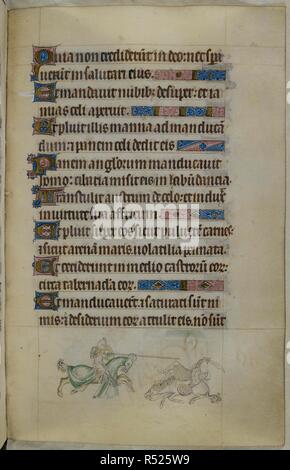 Quia non crediderunt in deo: nec spe
raverunt in salutari eius.
Et mandavit nubibus desuper: et ia
nuas celi aperuit.
Et pluit illis manna ad manducan
dum: et panem celi dedit eis
Panem angelorum manducavit
homo: cibaria misit eis in habundancia.
Transtulit austrum de celo: et indux
in virtute sua affricum.
Et pluit super eos sicut pulverem carnes
et sicut arenam maris volatilia pennata.
Et ceciderunt in medio castrorum eor:
circa tabernacula eor.
Et manducaverunt et saturati sunt ni
mis: et desiderium eor attulit eis. non sunt
alamy
alamy
Image ID: R525W9
www.alamy.com